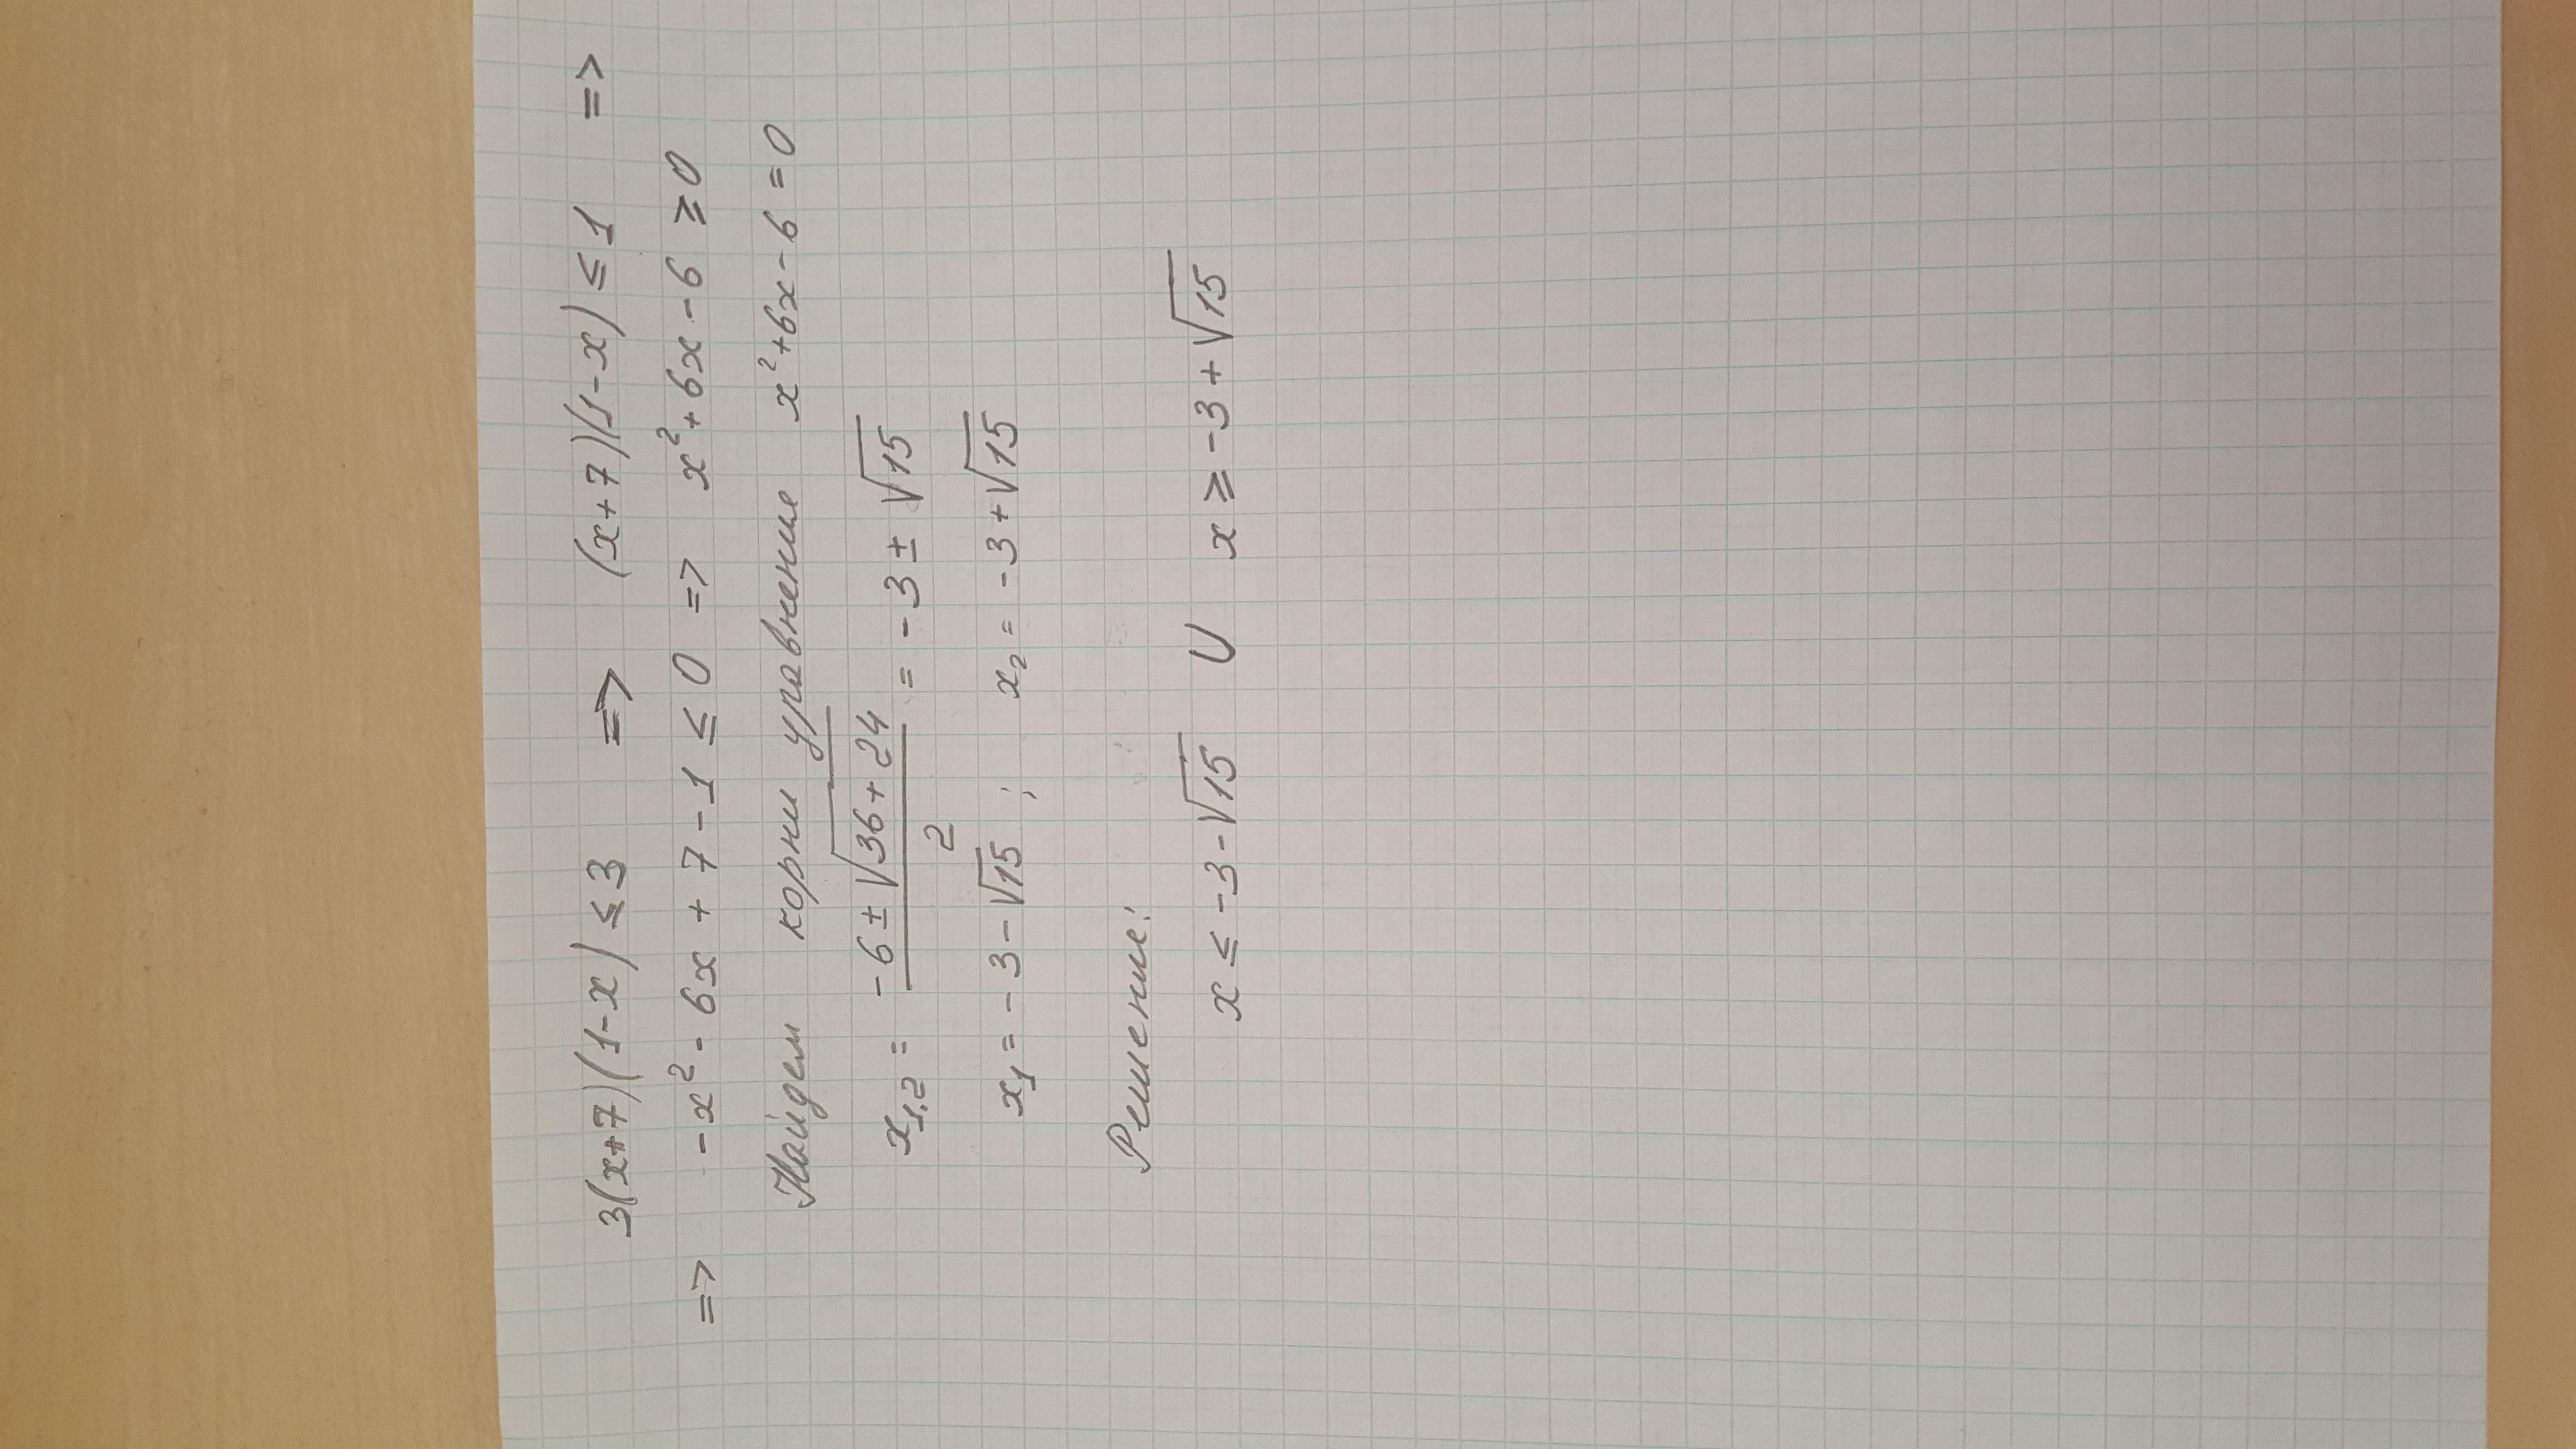 3(x+7)(1-x) ≤ 3 => (x+7)(1-x) ≤ 1 =>
=> -x² - 6x + 7 - 1 ≤ 0 => x² + 6x - 6 ≥ 0
Найдем корни уравнения x² + 6x - 6 = 0
x₁,₂ = (-6 ± √(36 + 24))/2 = -3 ± √15
x₁ = -3 - √15 ; x₂ = -3 + √15
Решение:
x ≤ -3 - √15 U x ≥ -3 + √15